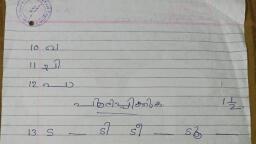 10 ബ
11 പി
12 ഫാ
പൂരിപ്പിക്കുക 1 1/2
13 ട — ടി ടീ — ടൂ —